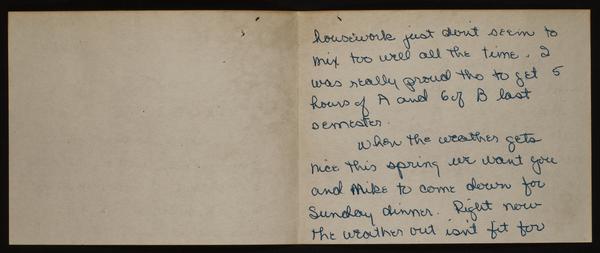 housework just don't seem to
mix too well all the time. I
was really proud tho to get 5
hours of A and 6 of B last
semester.
When the weather gets
nice this spring we want you
and Mike to come down for
Sunday dinner. Right now
the weather out isn't fit for